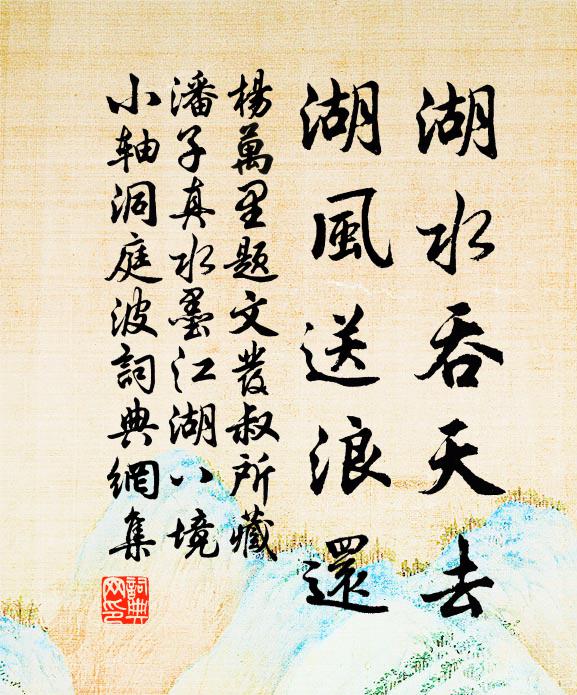 湖水吞天去
湖風送浪還
楊萬里題文發叔所藏
潘子真水墨江湖八境
小軸洞庭波詞典網集
詞典網印